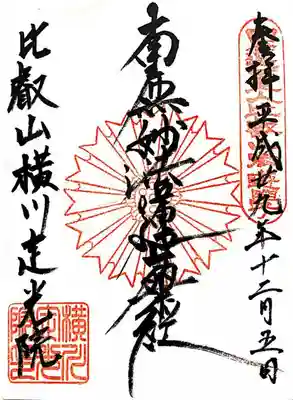 奉拝 平成廿九年十二月五日
南無妙法蓮華経
比叡山横川定光院